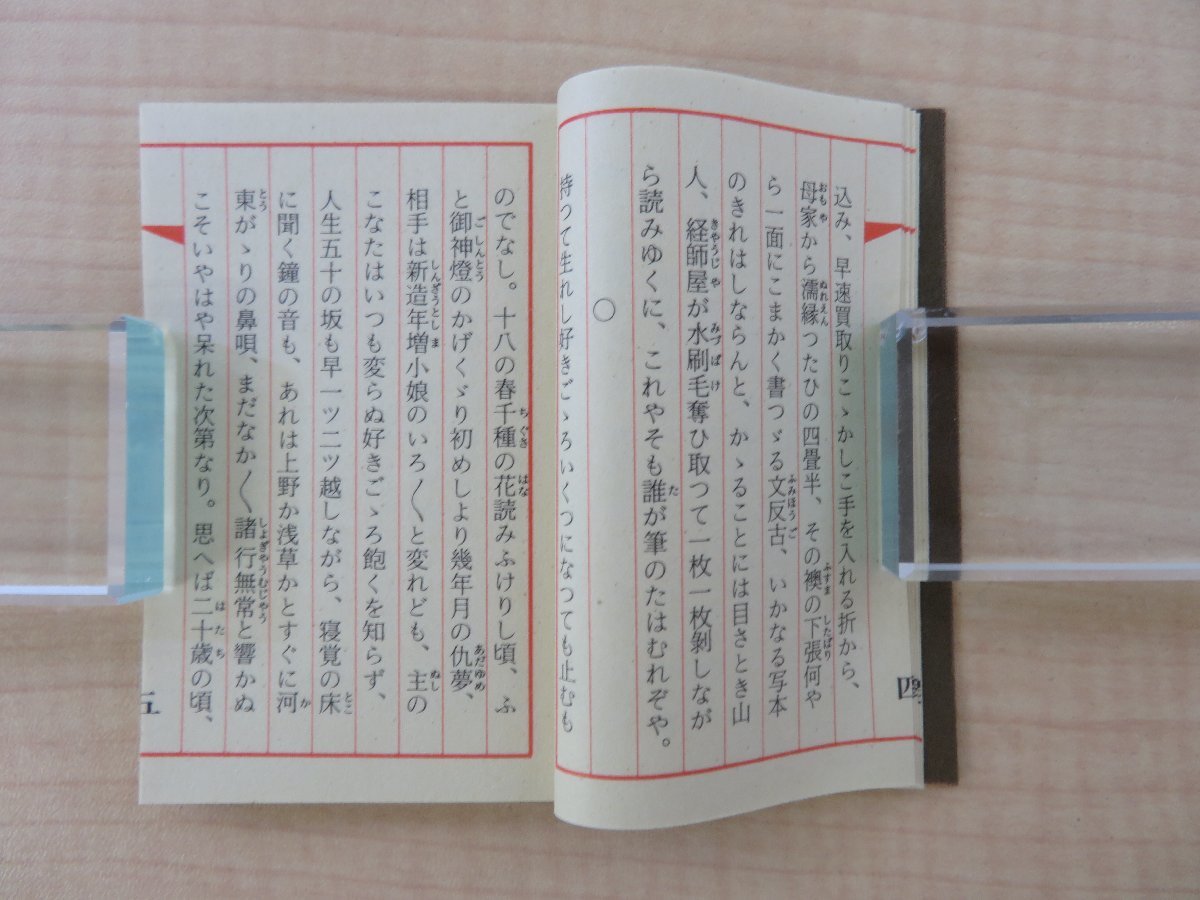 込み、早速買取りこゝかしこ手を入れる折から、
母家から濡縁つたひの四畳半、その襖の下張何や
ら一面にこまかく書つゞる文反古、いかなる写本
のきれはしならんと、かゝることには目さとき山
人、経師屋が水刷毛奪ひ取つて一枚一枚剝しなが
ら読みゆくに、これやそも誰が筆のたはむれぞや。
○
待つて生れし好きごゝろいくつになつても止むも
四
のでなし。十八の春千種の花読みふけりし頃、ふ
と御神燈のかげくゞり初めしより幾年月の仇夢、
相手は新造年増小娘のいろ〱と変れども、主の
こなたはいつも変らぬ好きごゝろ飽くを知らず、
人生五十の坂も早一ツ二ツ越しながら、寝覚の床
に聞く鐘の音も、あれは上野か浅草かとすぐに河
東がゝりの鼻唄、まだなか〱諸行無常と響かぬ
こそいやはや呆れた次第なり。思へば二十歳の頃、
五